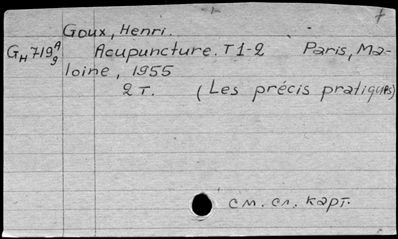 Goux, Henri.
GH719A9 Acupuncture. T1-2 Paris, Ma-
loine, 1955
2 T. (Les précis pratiques)
см. сл. карт.